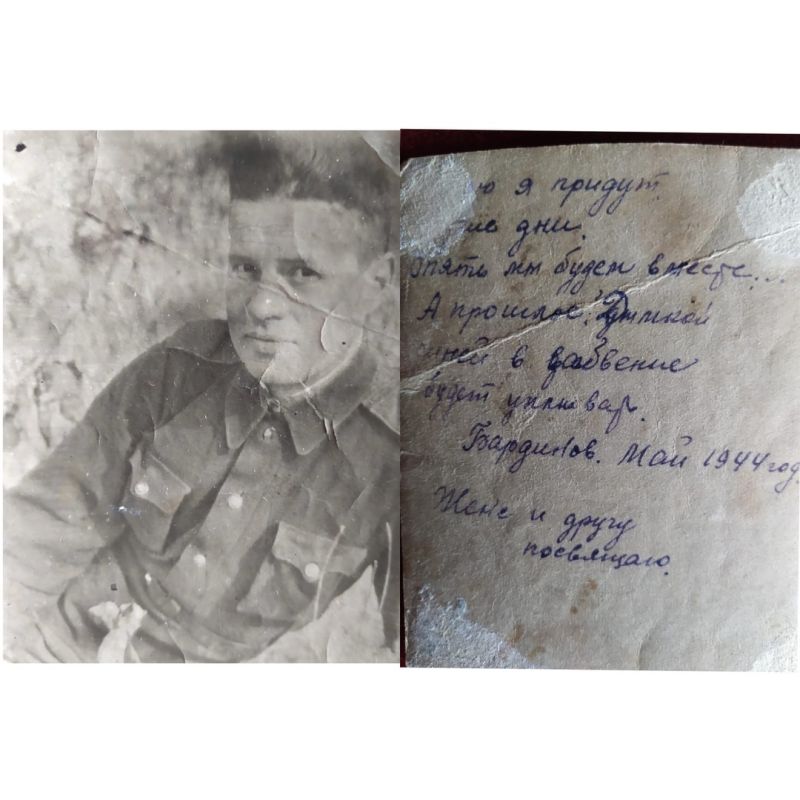 ю я придут
дни.
Опять мы будем вместе...
А прошлое дымкой
в забвение
будет уплывать.
Бардинов. Май 1944 год.
Жене и другу
посвящаю.